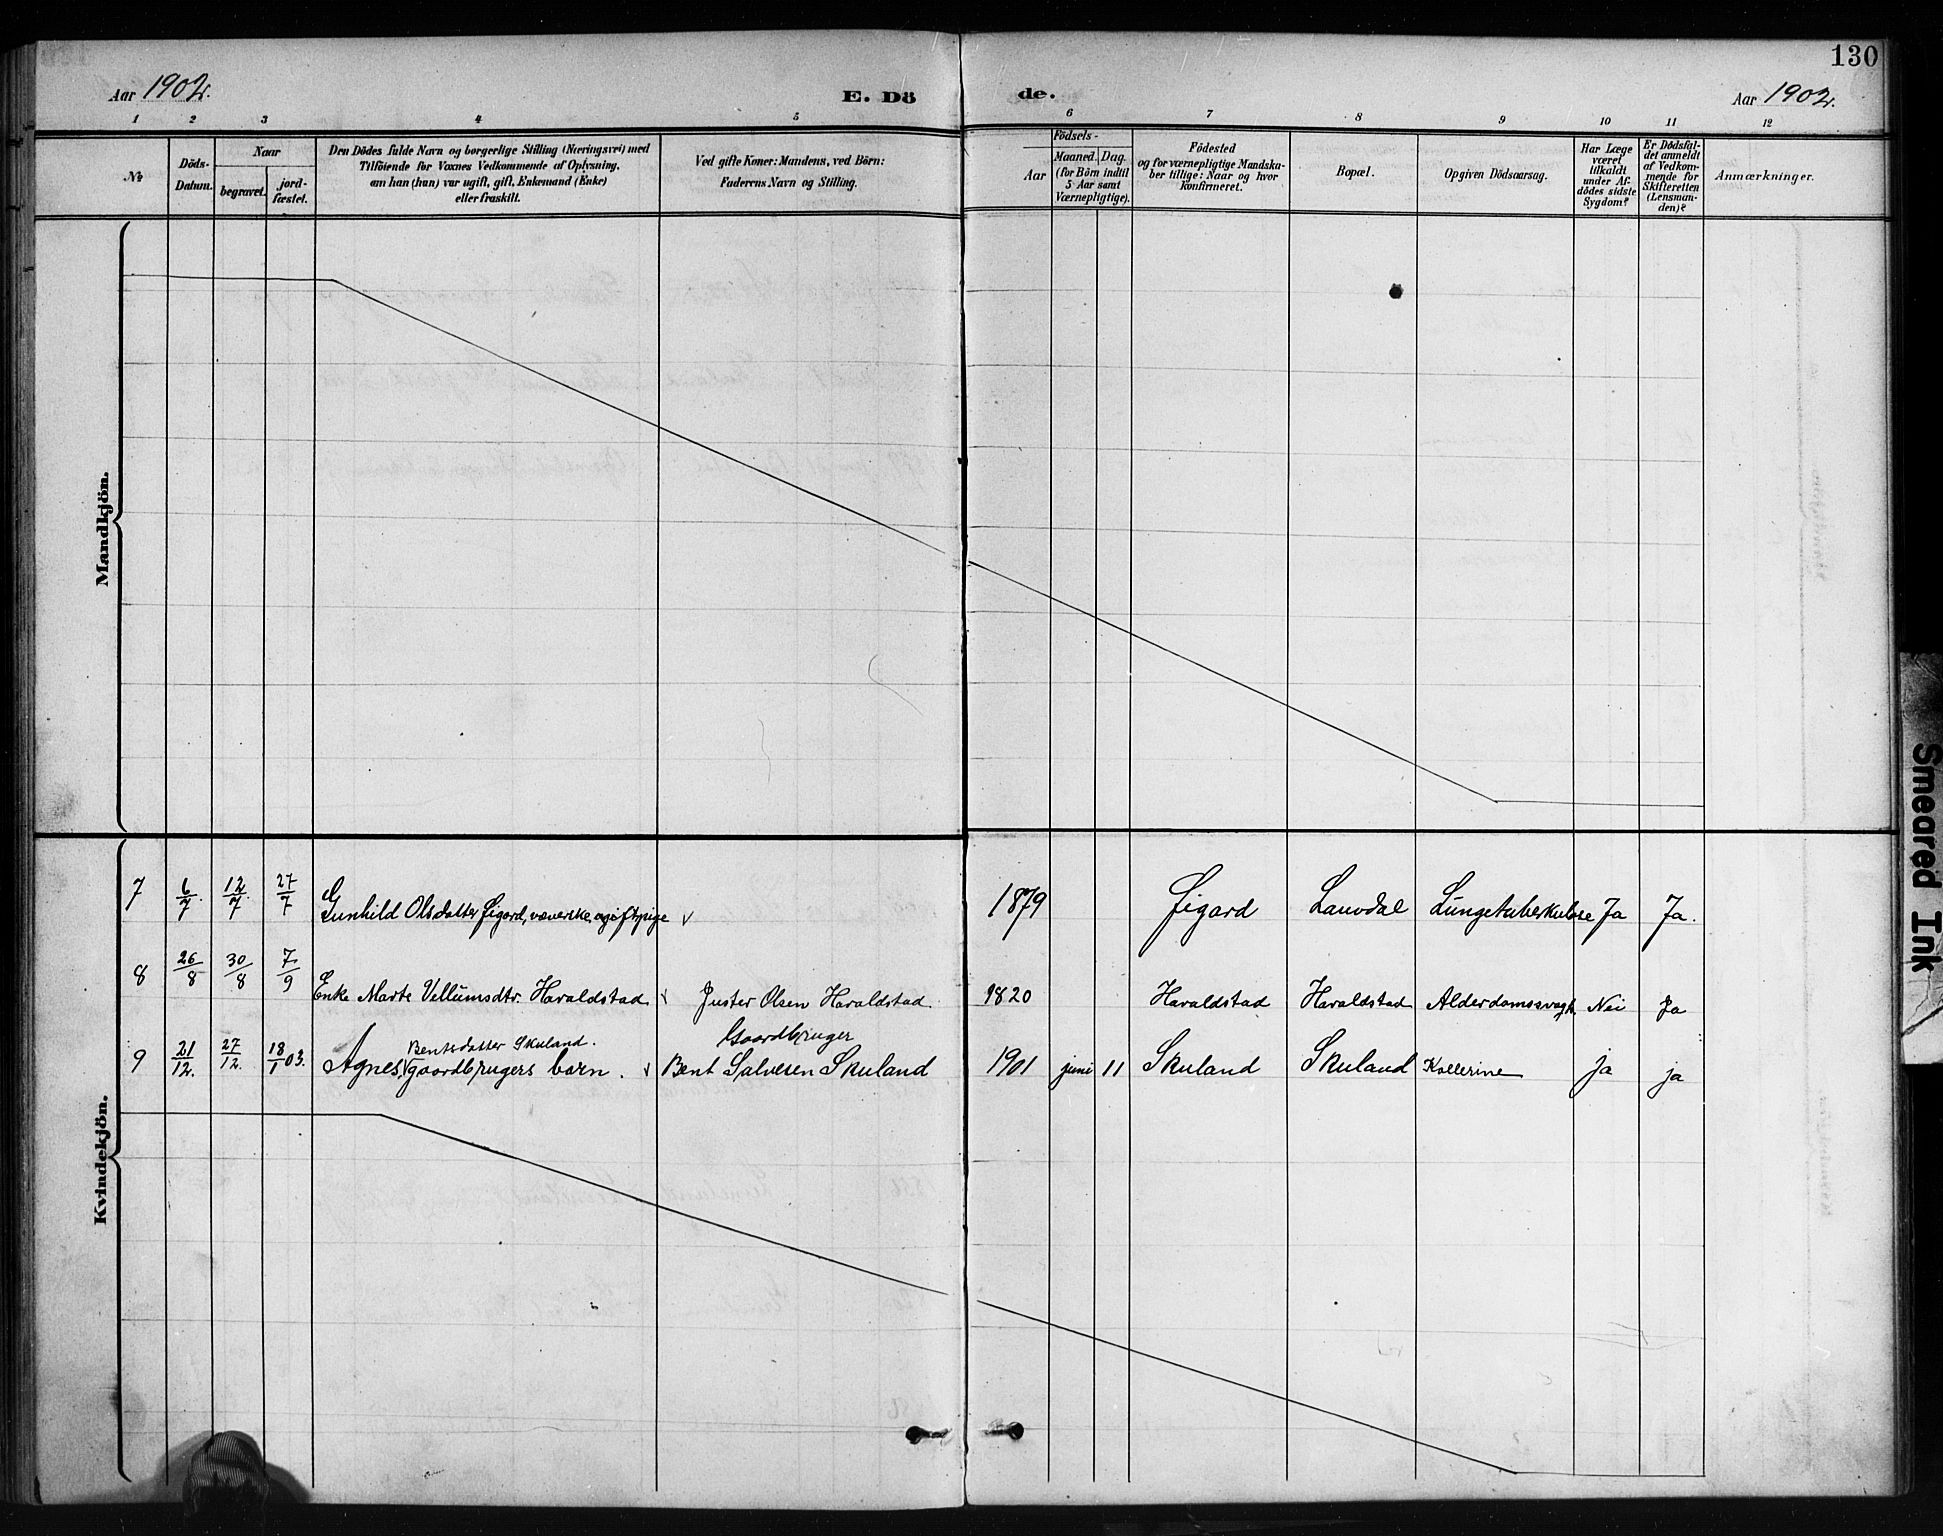 130
Aar 1902.
E. Dö
de.
Aar 1902.
1 2 3 4 5 6 7 8 9 10 11 12
№
Döds-
Datum.
Naar
begravet.
jord-
fæstet.
Den Dödes fulde Navn og borgerlige Stilling (Næringsvei) med
Tilföiende for Voxnes Vedkommende af Oplysning,
om han (hun) var ugift, gift, Enkemand (Enke)
eller fraskilt.
Ved gifte Koner: Mandens, ved Börn:
Faderens Navn og Stilling.
Födsels-
Aar
Maaned. Dag.
(for Börn indtil
5 Aar samt
Værnepligtige).
Födested
og for værnepligtige Mandska-
ber tillige: Naar og hvor
konfirmeret.
Bopæl.
Opgiven Dödsaarsag.
Har Læge
været
tilkaldt
under Af-
dödes sidste
Sygdom?
Er Dödsfal-
det anmeldt
af Vedkom-
mende for
Skifteretten
(Lensman-
den)?
Anmærkninger.
Mandkjön.
Kvindekjön.
7 6/7. 12/7. 27/7 Gunhild Olsdatter Øigard, væverske ugift pige 1879 Øigard Lauvdal Lungetuberkulose Ja Ja.
8 26/8 30/8 7/9 Enke Marte Villumsdtr. Haraldstad Juster Olsen Haraldstad 1820 Haraldstad Haraldstad Alderdomssvagh. Nei Ja
Gaardbruger
Bentsdatter Skuland.
9 21/12. 27/12. 18/1 03. Agnes, gaardbrugers barn. Bent Salvesen Skuland 1901 juni 11 Skuland Skuland Kollerine ja ja
Smeared Ink